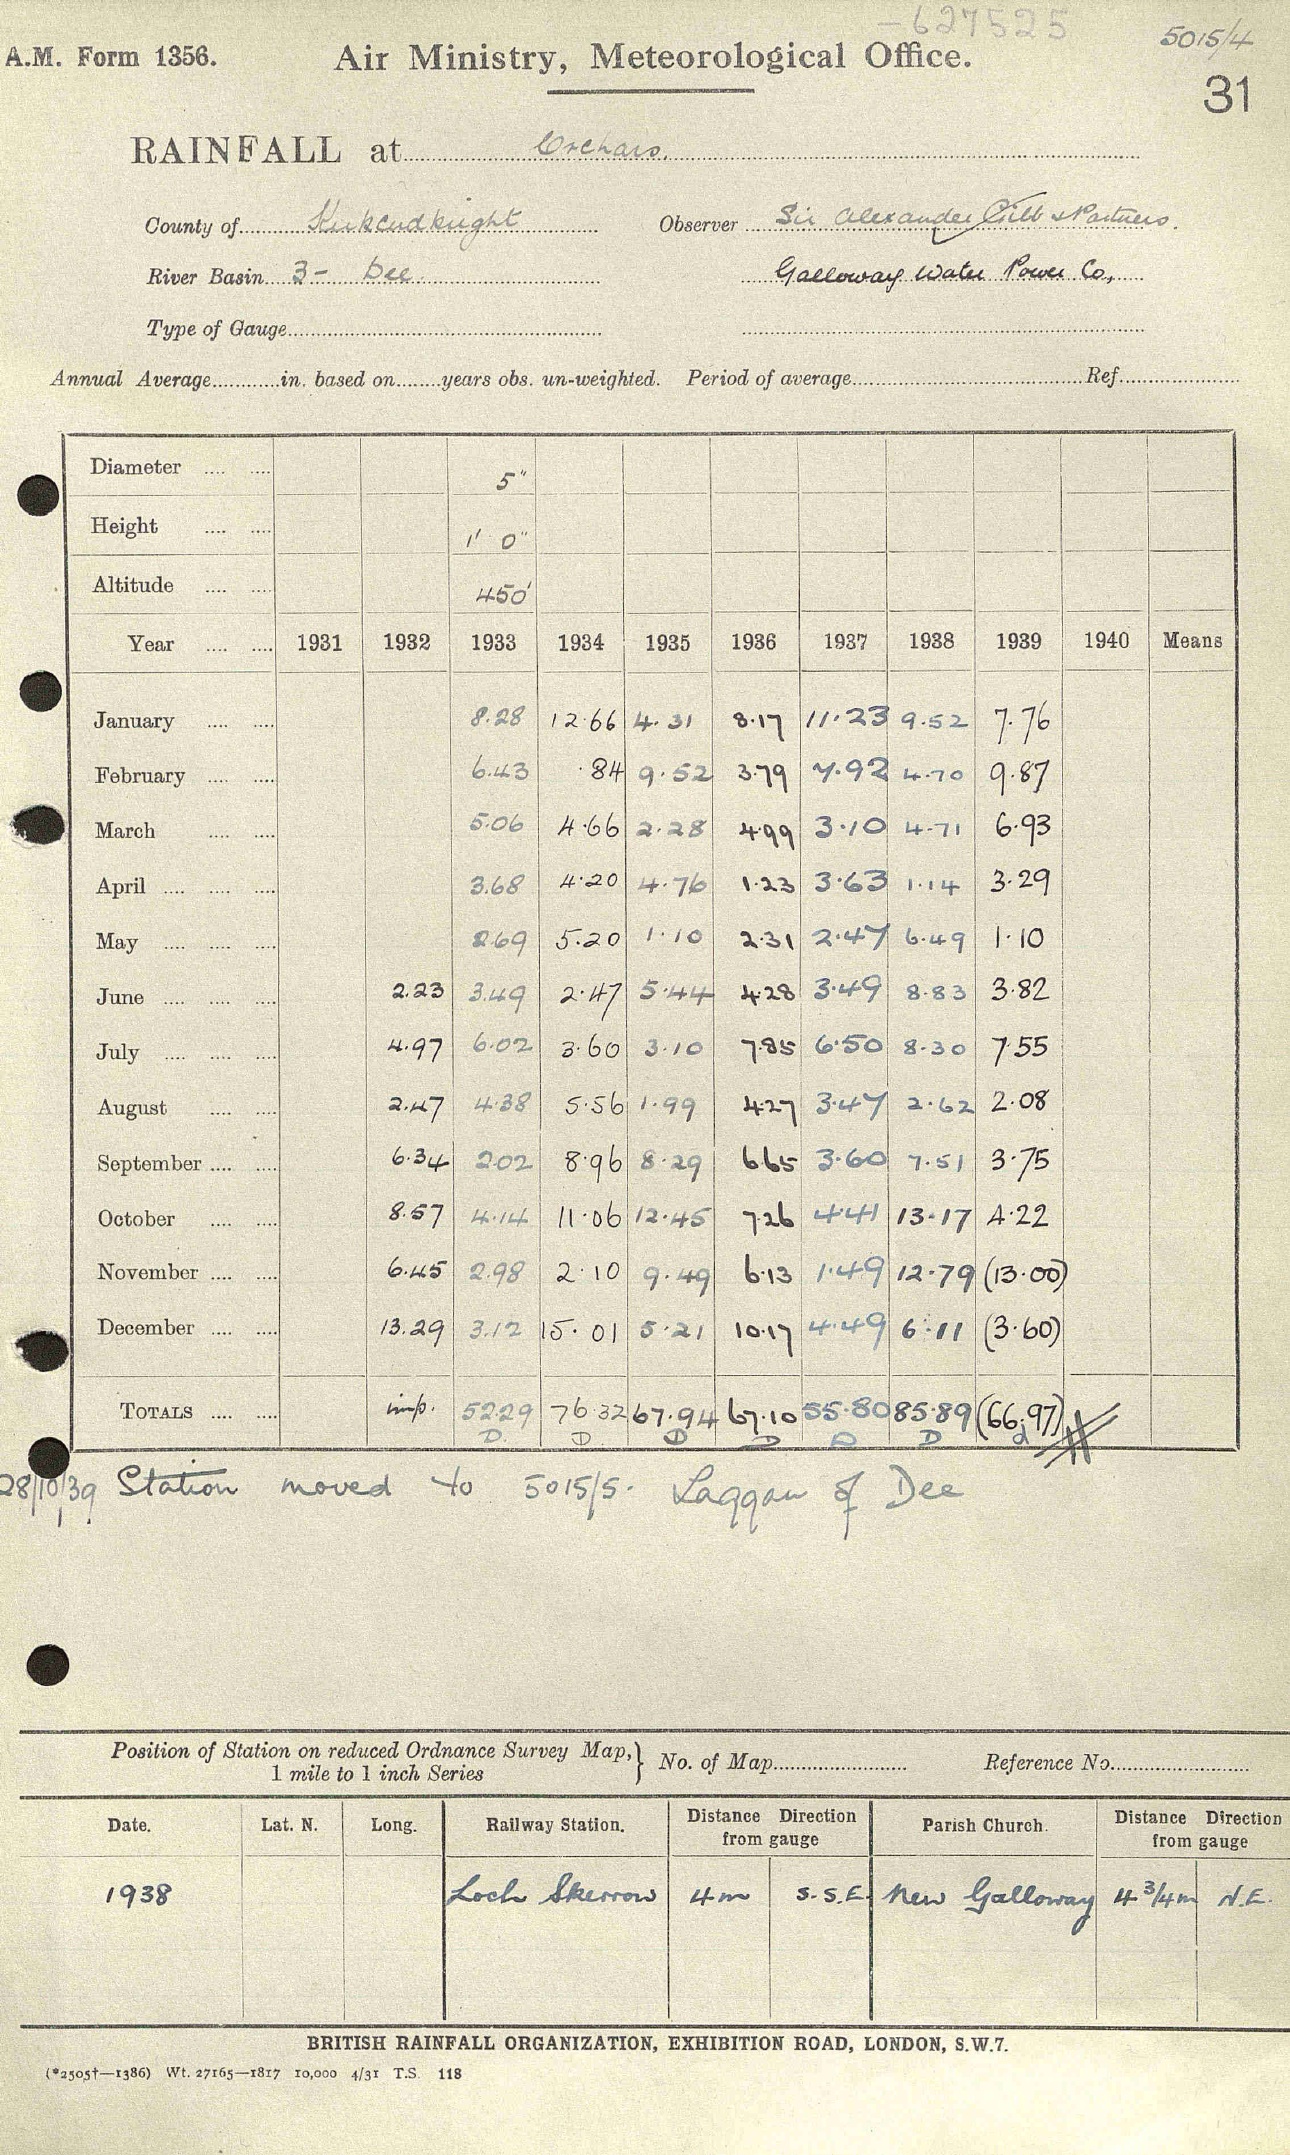 -627525
5015/4
A.M. Form 1356. Air Ministry, Meteorological Office.
31
RAINFALL at Orchars.
County of Kirkcudbright Observer Sir Alexander Gibb & Partners.
River Basin 3- Dee. Galloway Water Power Co,
Type of Gauge
Annual Average in. based on years obs. un-weighted. Period of average Ref.
Diameter 5"
Height 1' 0"
Altitude 450'
Year 1931 1932 1933 1934 1935 1936 1937 1938 1939 1940 Means
January 8.28 12.66 4.31 8.17 11.23 9.52 7.76
February 6.43 .84 9.52 3.79 7.92 4.70 9.87
March 5.06 4.66 2.28 4.99 3.10 4.71 6.93
April 3.68 4.20 4.76 1.23 3.63 1.14 3.29
May 2.69 5.20 1.10 2.31 2.47 6.49 1.10
June 2.23 3.49 2.47 5.44 4.28 3.49 8.83 3.82
July 4.97 6.02 3.60 3.10 7.85 6.50 8.30 7.55
August 2.47 4.38 5.56 1.99 4.27 3.47 2.62 2.08
September 6.34 2.02 8.96 8.29 6.65 3.60 7.51 3.75
October 8.57 4.14 11.06 12.45 7.26 4.41 13.17 4.22
November 6.45 2.98 2.10 9.49 6.13 1.49 12.79 (13.00)
December 13.29 3.12 15.01 5.21 10.17 4.49 6.11 (3.60)
TOTALS imp. 52.29 76.32 67.94 67.10 55.80 85.89 (66.97)
D. D D D D D d
28/10/39 Station moved to 5015/5. Laggan of Dee
Position of Station on reduced Ordnance Survey Map, 1 mile to 1 inch Series } No. of Map Reference No.
Date. Lat. N. Long. Railway Station. Distance Direction from gauge Parish Church. Distance Direction from gauge
1938 Loch Skerrow 4m S.S.E. New Galloway 4 3/4m N.E.
BRITISH RAINFALL ORGANIZATION, EXHIBITION ROAD, LONDON, S.W.7.
(*2505†—1386) Wt. 27165—1817 10,000 4/31 T.S. 118